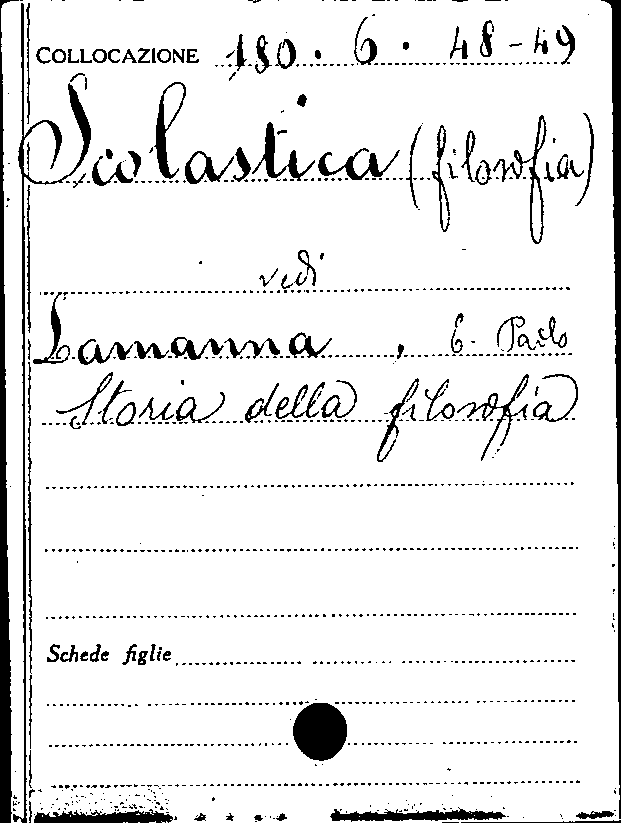 COLLOCAZIONE 180. 6. 48-49
Scolastica (filosofia)
vedi
Lamanna, E. Paolo
Storia della filosofia
Schede figlie